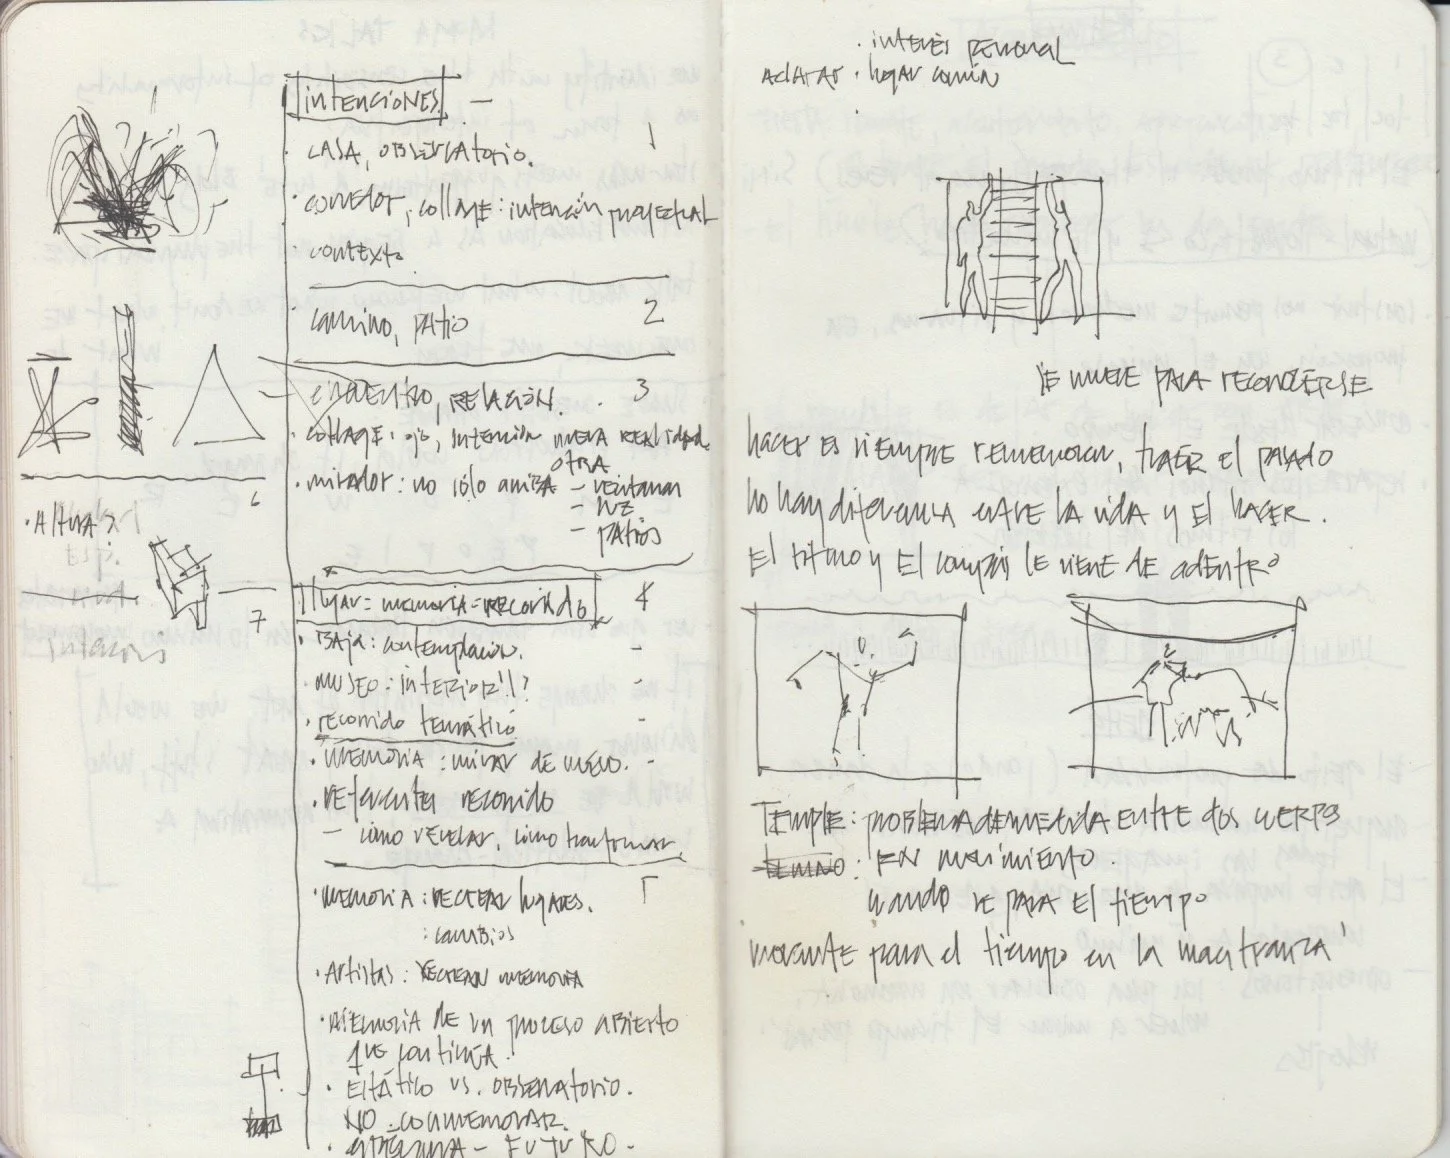 intenciones —
1
· casa, observatorio.
· corredor, collage: intención proyectual
· contexto
camino, patio 2
encuentro, relación. 3
· collage: ojo, intención nueva realidad
otra
· mirador: no sólo arriba – ventanas
– luz
– patios
6
· Altura?
7
lugar = memoria = recorrido 4
· Baja: contemplación. -
· museo: interior!!? -
· recorrido temático -
· memoria: mirar de nuevo. -
· referentes recorrido
– cómo revelar, cómo transformar
5
· memoria: recrear lugares.
: cambios
· Artistas: recrean memoria
· memoria de un proceso abierto
que continúa.
· Estático vs. observatorio.
NO conmemorar.
– FUTURO -
· interés personal
aclarar · lugar común
·
se mueve para reconocerse
hacer es siempre rememorar, traer el pasado
no hay diferencia entre la vida y el hacer.
El ritmo y el compás le viene de adentro
Temple: problema de medida entre dos cuerpos
: en movimiento.
cuando se para el tiempo
morante para el tiempo en la maestranza